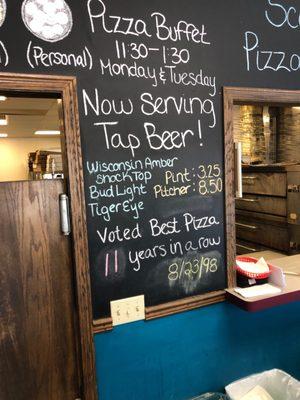 Pizza Buffet
11:30-1:30
(Personal)
Monday & Tuesday
Pizza
Now Serving
Tap Beer!
Wisconsin Amber
ShockTop
Bud Light
TigerEye
Pint: 3.25
Pitcher: 8.50
Voted Best Pizza
11 years in a row
8/23/98